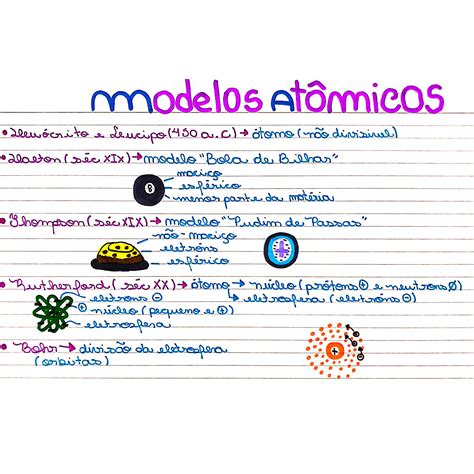 modelos Atômicos
• Demócrito e Leucipo (450 a.C) → átomo (não divisível)
• Dalton (séc XIX) → modelo "Bola de Bilhar"
maciço
8
esférico
menor parte da matéria
• Thompson (séc XIX) → modelo "Pudim de Passas"
não-maciço
elétrons
esférico
• Rutherford (séc XX) → átomo → núcleo (prótons + e neutrons 0)
eletrosfera (elétrons -)
elétrons -
+ núcleo (pequeno e +)
eletrosfera
• Bohr → divisão da eletrosfera
(orbitas)